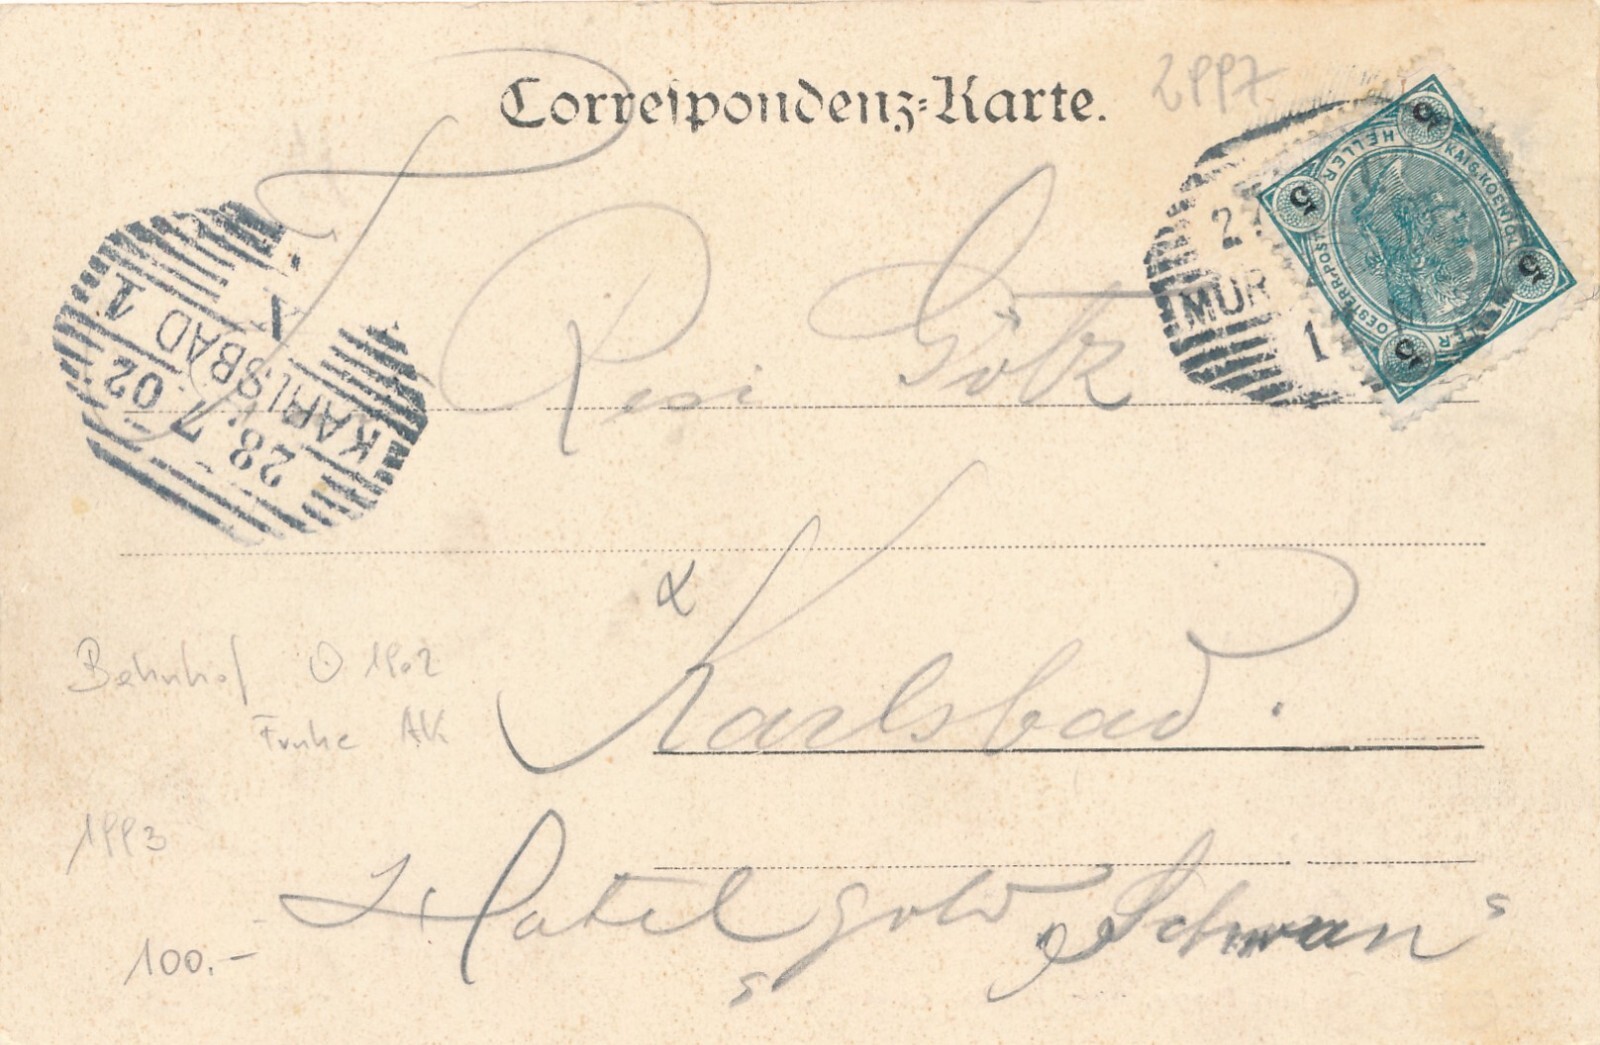 Correspondenz-Karte.
2997
5 5 5 5
KAIS. KOENIGL. OESTERR. POST
HELLER HELLER
27
MUR
1
KARLSBAD 1
28 7 02
X
Frl. Resi Götz
Karlsbad.
Hotel gold „Schwan“
Bahnhof O 1902
Frühe AK
1993
100.-